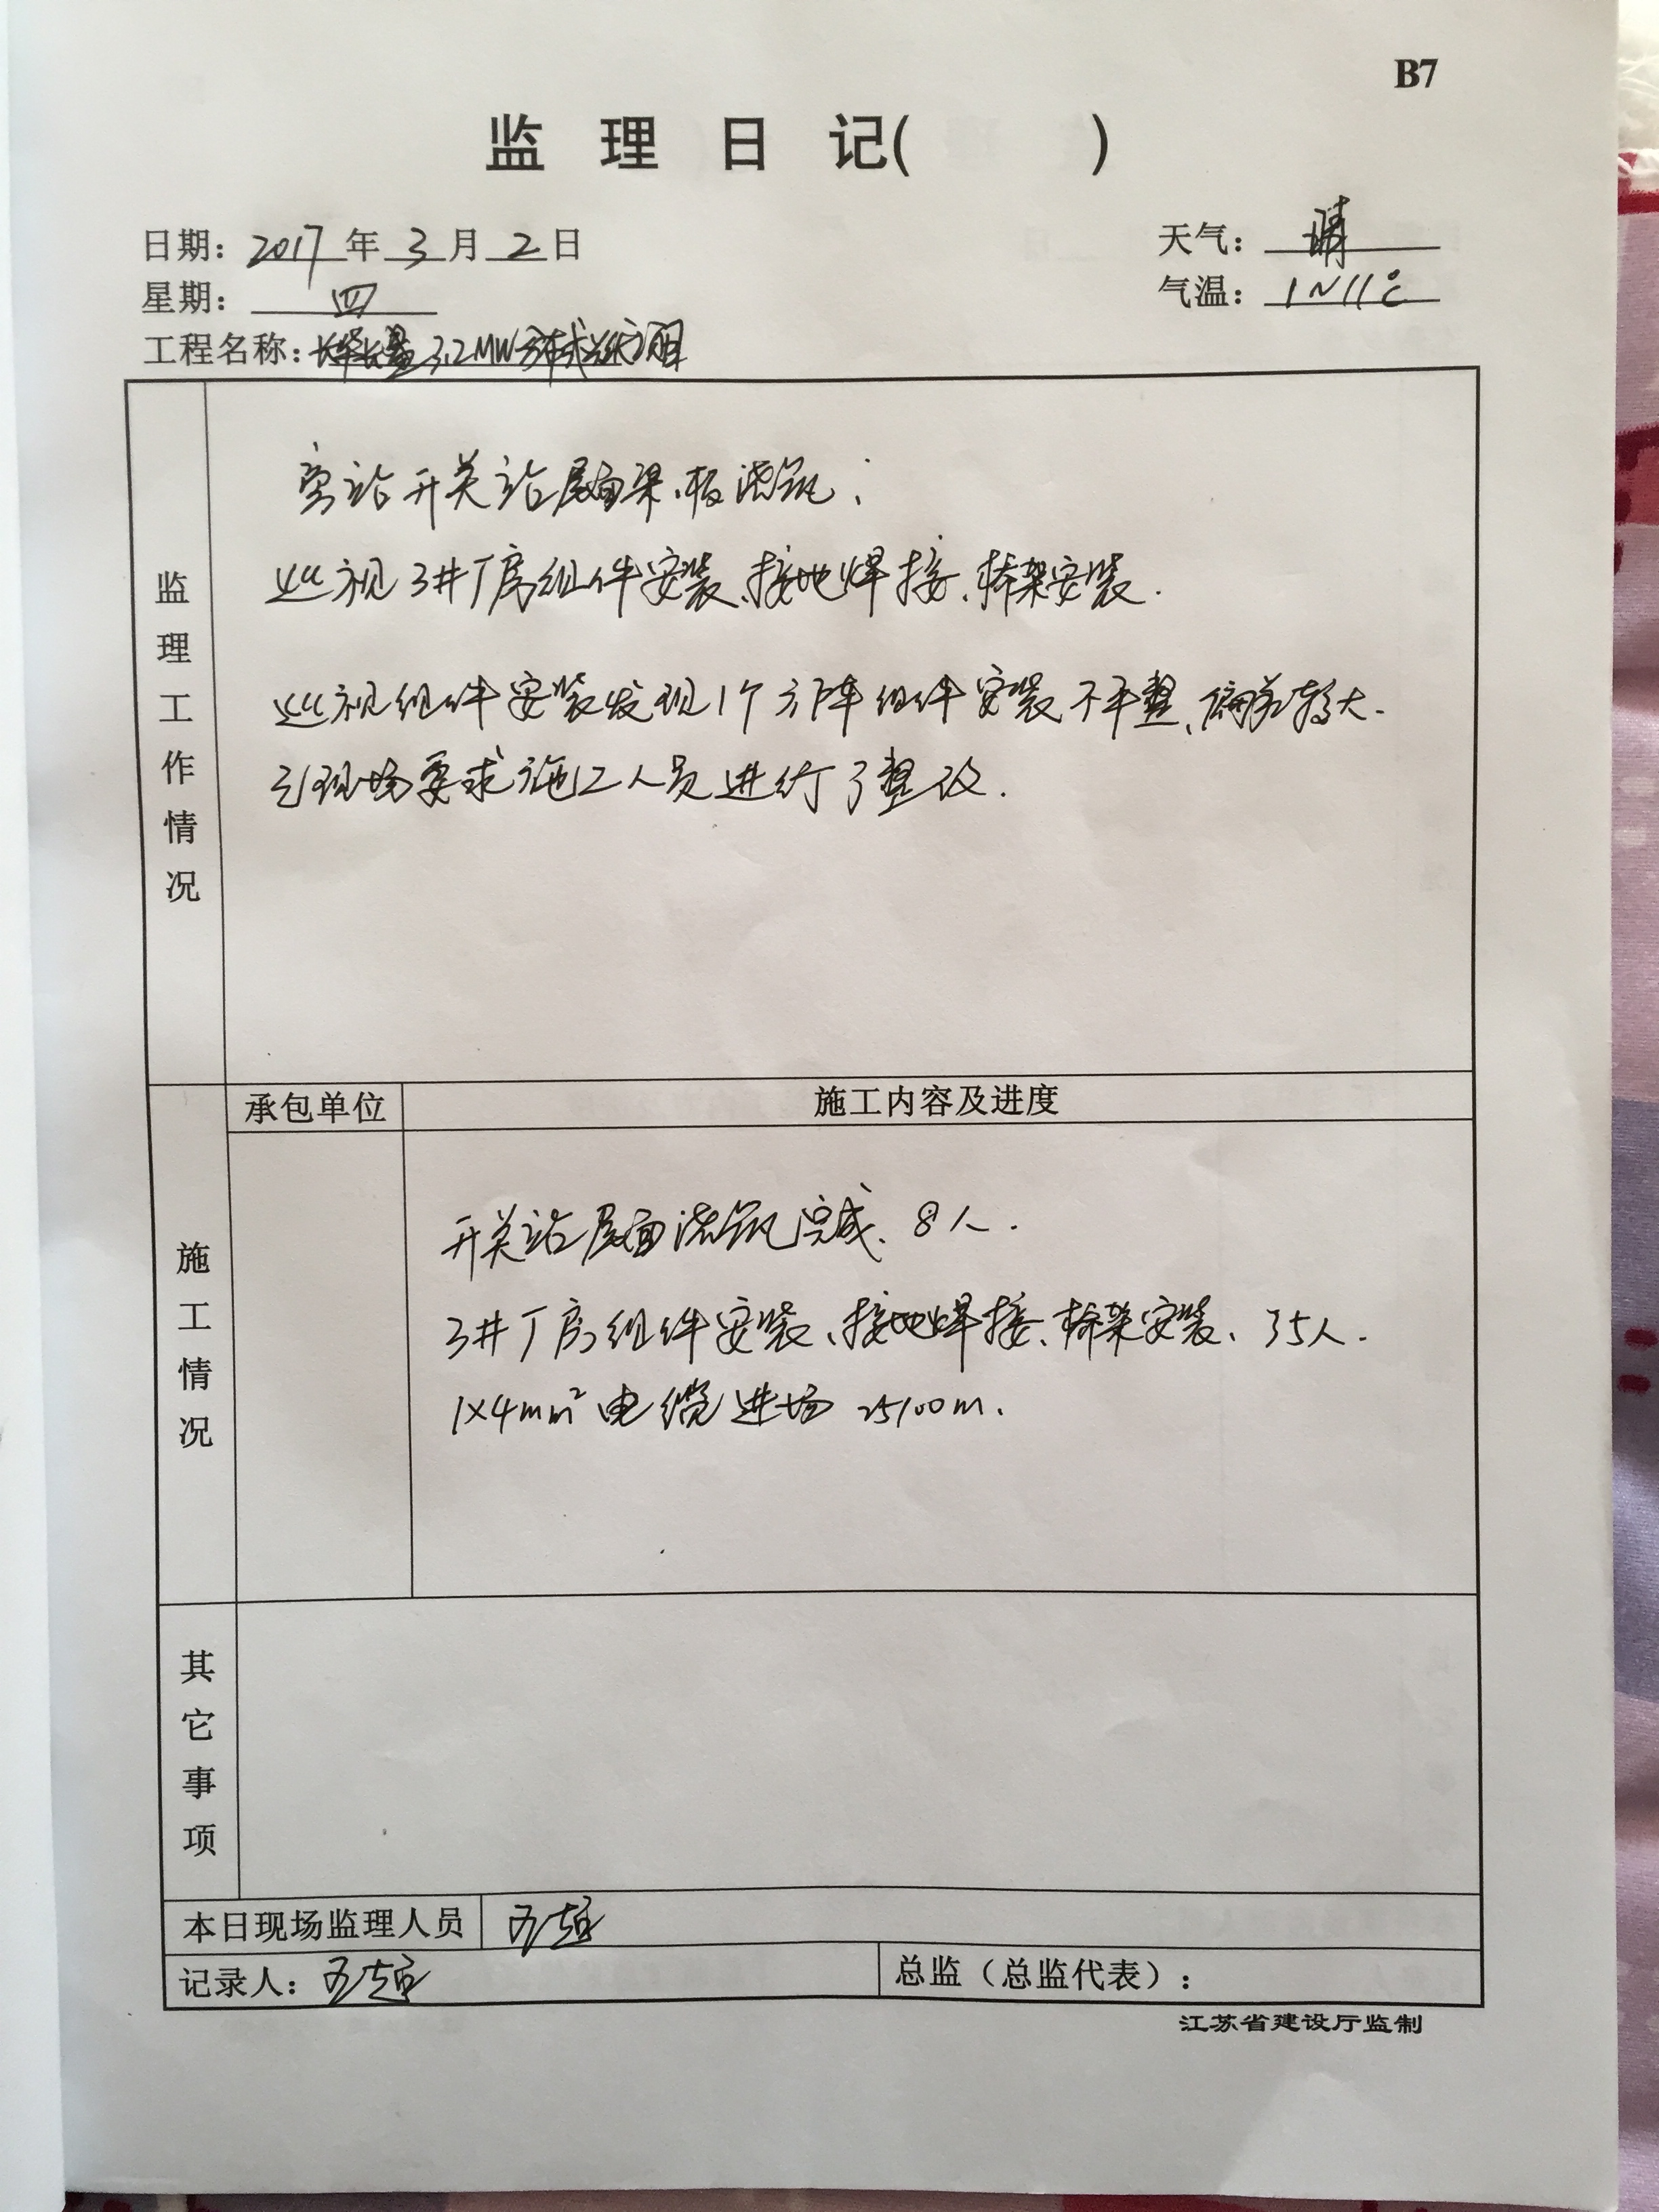 B7
监 理 日 记( )
日期: 2017 年 3 月 2 日
天气: 晴
星期: 四
气温: 1~11℃
工程名称: 3.2MW分布式光伏项目
旁站开关站屋面梁、板浇筑;
巡视3#厂房组件安装、接地焊接、桥架安装.
巡视组件安装发现1个方阵组件安装不平整、偏差较大.
已现场要求施工人员进行了整改.
监理工作情况
承包单位 施工内容及进度
开关站屋面浇筑完成、8人.
3#厂房组件安装、接地焊接、桥架安装、35人.
1×4mm² 电缆进场 25100m.
施工情况
其它事项
本日现场监理人员
记录人:
总监(总监代表):
江苏省建设厅监制